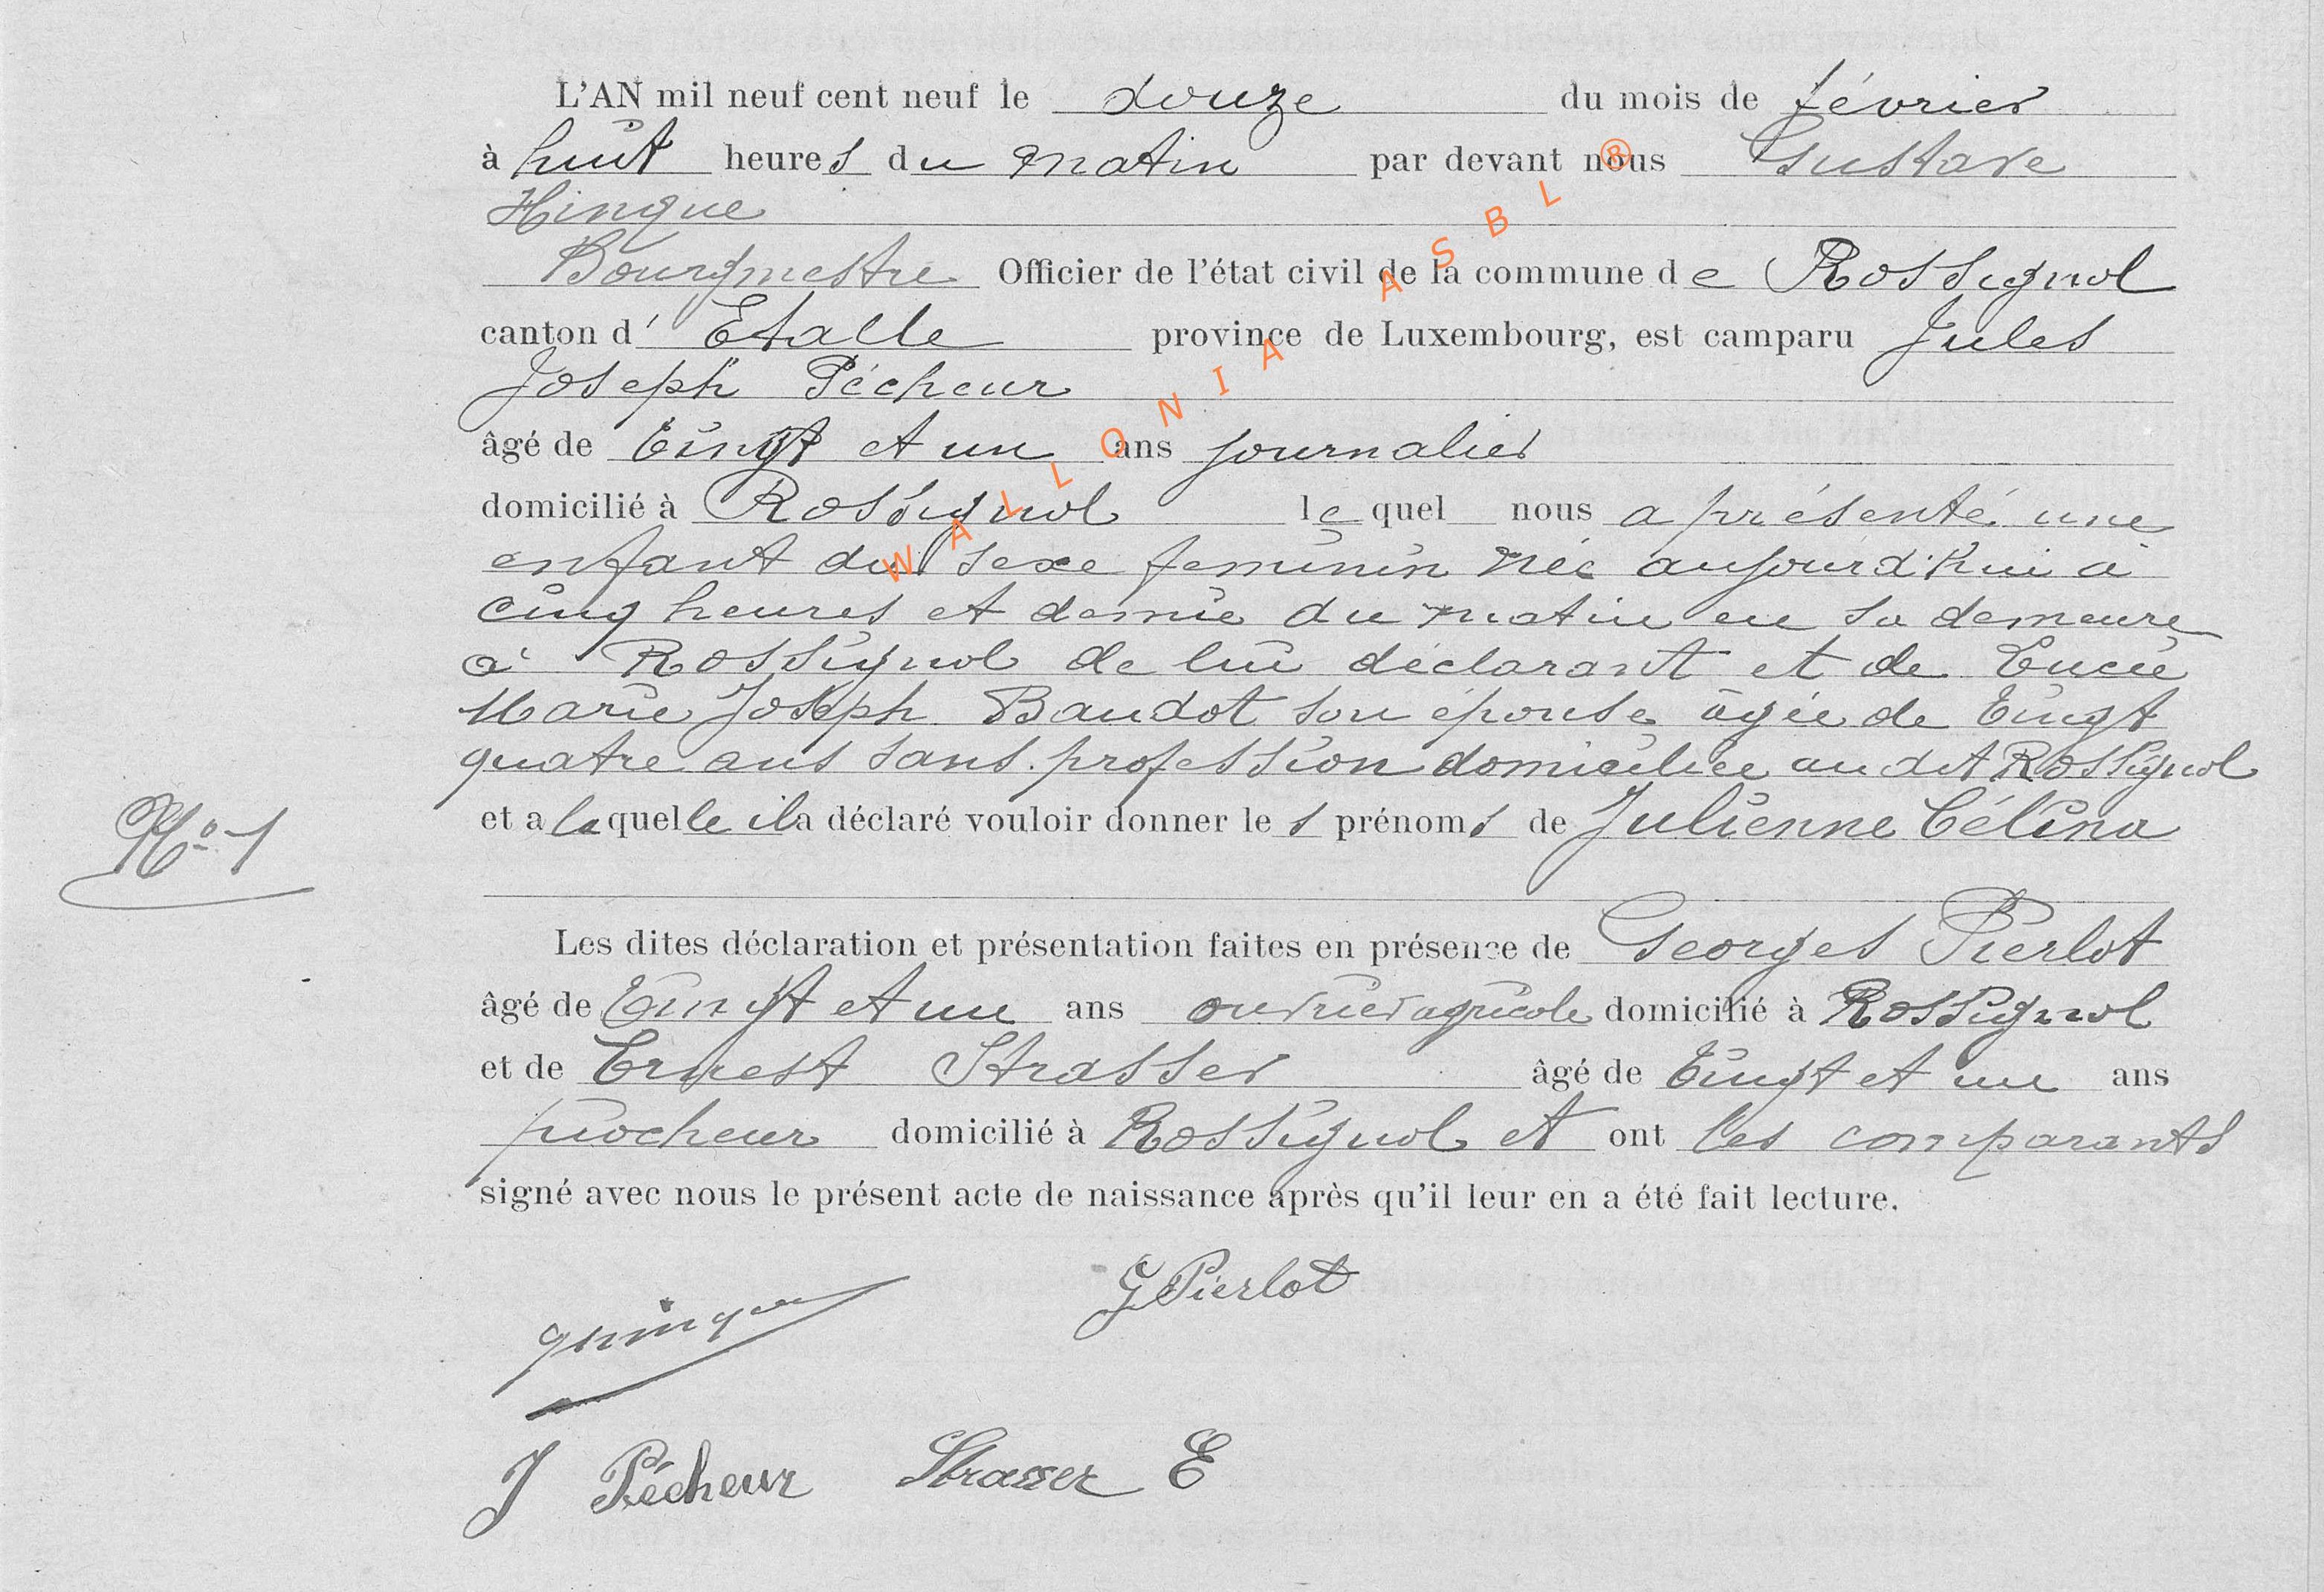 L'AN mil neuf cent neuf le douze du mois de février
à huit heures du matin par devant nous Gustave
Hinque
Bourgmestre Officier de l'état civil de la commune de Rossignol
canton d' Etalle province de Luxembourg, est camparu Jules
Joseph Pécheur
âgé de vingt et un ans journalier
domicilié à Rossignol lequel nous a présenté une
enfant du sexe feminin née aujourd'hui à
cinq heures et demie du matin en sa demeure
à Rossignol de lui déclarant et de Lucie
Marie Joseph Baudot son épouse âgée de vingt
quatre ans sans profession domiciliée au dit Rossignol
et a laquelle il a déclaré vouloir donner les prénoms de Julienne Célina
No 1
Les dites déclaration et présentation faites en présence de Georges Pierlot
âgé de vingt et un ans ouvrier agricole domicilié à Rossignol
et de Ernest Strasser âgé de vingt et un ans
piocheur domicilié à Rossignol et ont les comparants
signé avec nous le présent acte de naissance après qu'il leur en a été fait lecture.
G Pierlot
J Pécheur Strasser E
WALLONIA ASBL ®